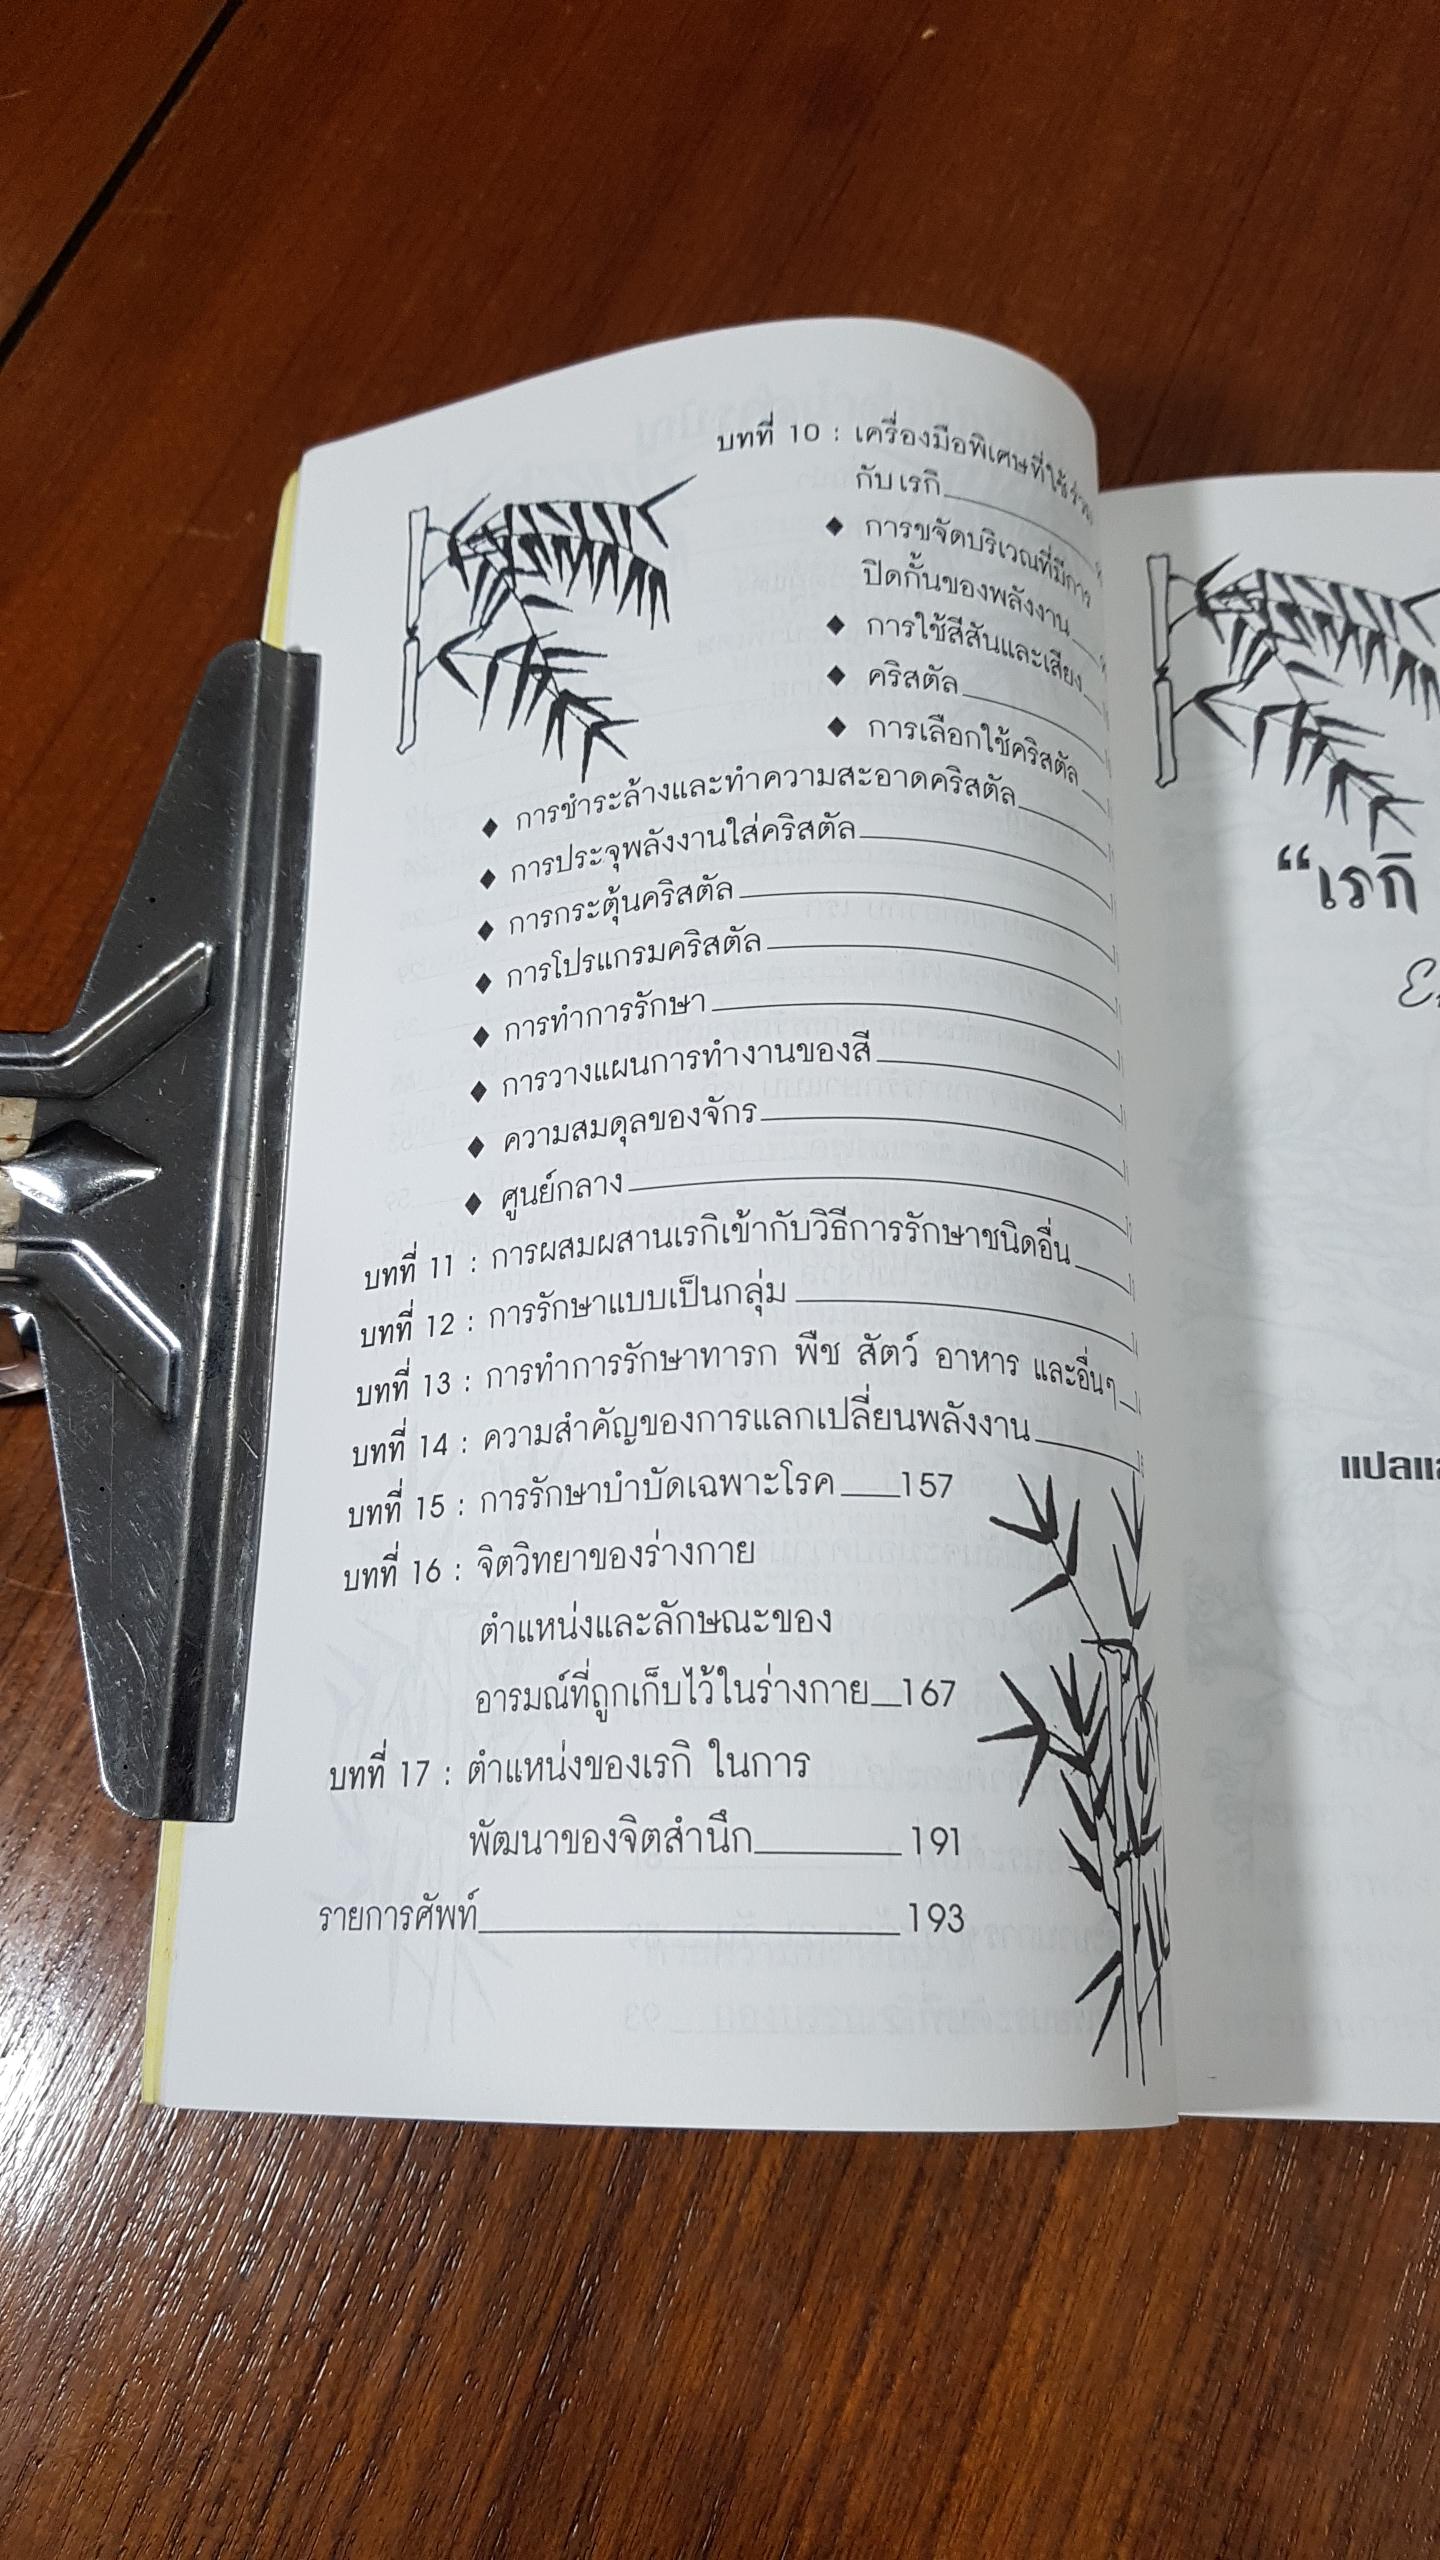 บทที่ 10 : เครื่องมือพิเศษที่ใช้ร่วม
กับเรกิ
◆ การขจัดบริเวณที่มีการ
ปิดกั้นของพลังงาน
◆ การใช้สีสันและเสียง
◆ คริสตัล
◆ การเลือกใช้คริสตัล
◆ การชำระล้างและทำความสะอาดคริสตัล
◆ การประจุพลังงานใส่คริสตัล
◆ การกระตุ้นคริสตัล
◆ การโปรแกรมคริสตัล
◆ การทำการรักษา
◆ การวางแผนการทำงานของสี
◆ ความสมดุลของจักร
◆ ศูนย์กลาง
บทที่ 11 : การผสมผสานเรกิเข้ากับวิธีการรักษาชนิดอื่น
บทที่ 12 : การรักษาแบบเป็นกลุ่ม
บทที่ 13 : การทำการรักษาทารก พืช สัตว์ อาหาร และอื่นๆ
บทที่ 14 : ความสำคัญของการแลกเปลี่ยนพลังงาน
บทที่ 15 : การรักษาบำบัดเฉพาะโรค 157
บทที่ 16 : จิตวิทยาของร่างกาย
ตำแหน่งและลักษณะของ
อารมณ์ที่ถูกเก็บไว้ในร่างกาย 167
บทที่ 17 : ตำแหน่งของเรกิ ในการ
พัฒนาของจิตสำนึก 191
รายการศัพท์ 193
“เรกิ